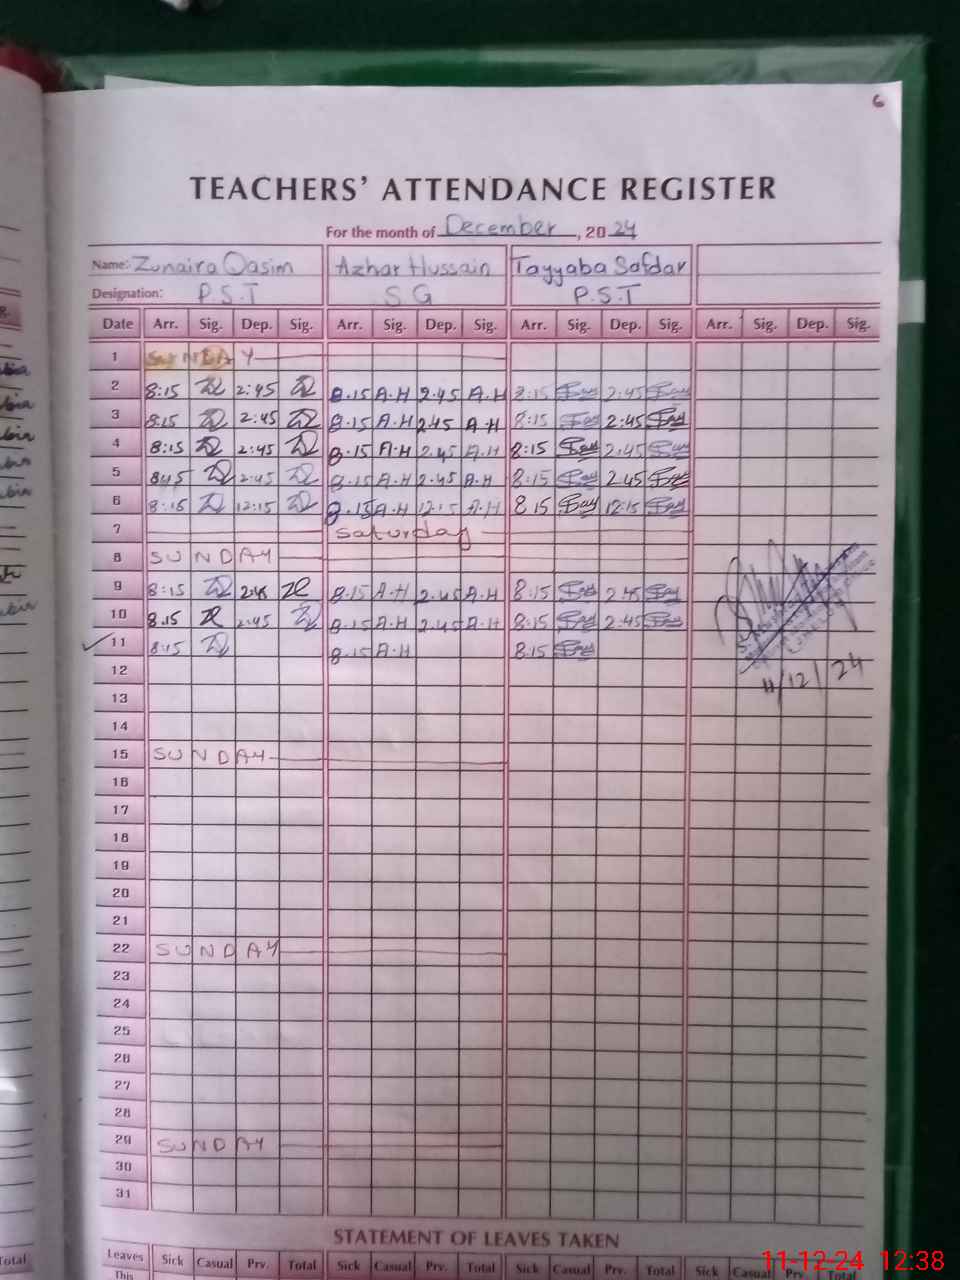 6
TEACHERS' ATTENDANCE REGISTER
For the month of December, 2024
Name: Zunaira Qasim Azhar Hussain Tayyaba Safdar
Designation: P.S.T S G P.S.T
Date Arr. Sig. Dep. Sig. Arr. Sig. Dep. Sig. Arr. Sig. Dep. Sig. Arr. Sig. Dep. Sig.
1 SUNDAY
2 8:15 2:45 8.15 A.H 2.45 A.H 8:15 2:45
3 8:15 2:45 8.15 A.H 2.45 A.H 8:15 2:45
4 8:15 2:45 8.15 A.H 2.45 A.H 8:15 2:45
5 8:15 2:45 8.15 A.H 2.45 A.H 8:15 2.45
6 8:15 12:15 8.15 A.H 12:15 A.H 8 15 12:15
7 Saturday
8 SUNDAY
9 8:15 2:45 8.15 A.H 2.45 A.H 8:15 2:45
10 8.15 2:45 8.15 A.H 2.45 A.H 8:15 2.45
11 8:15 8.15 A.H 8:15
11/12/24
12
13
14
15 SUNDAY
16
17
18
19
20
21
22 SUNDAY
23
24
25
26
27
28
29 SUNDAY
30
31
STATEMENT OF LEAVES TAKEN
Leaves Sick Casual Prv. Total Sick Casual Prv. Total Sick Casual Prv. Total Sick Casual Prv. Total
This
11-12-24 12:38